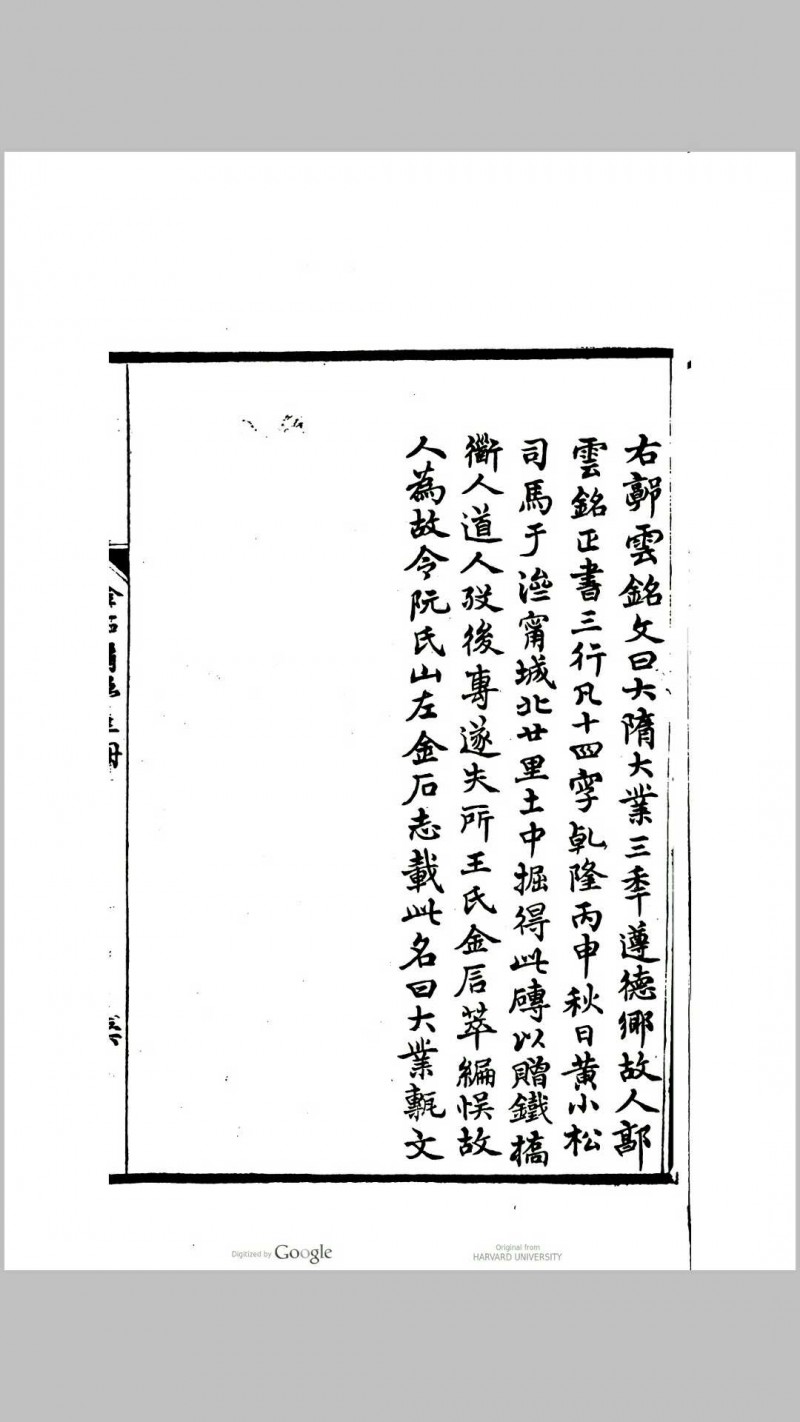 右鄣雲銘文曰大隋大業三秊遵德鄉故人鄣
雲銘正書三行凡十四字乾隆丙申秋日黃小松
司馬于濟甯城北廿里土中掘得此磚以贈鐵橋
衜人道人歿後專遂失所王氏金石萃編悮故
人為故令阮氏山左金石志載此名曰大業甎文
Digitized by Google
Original from
HARVARD UNIVERSITY